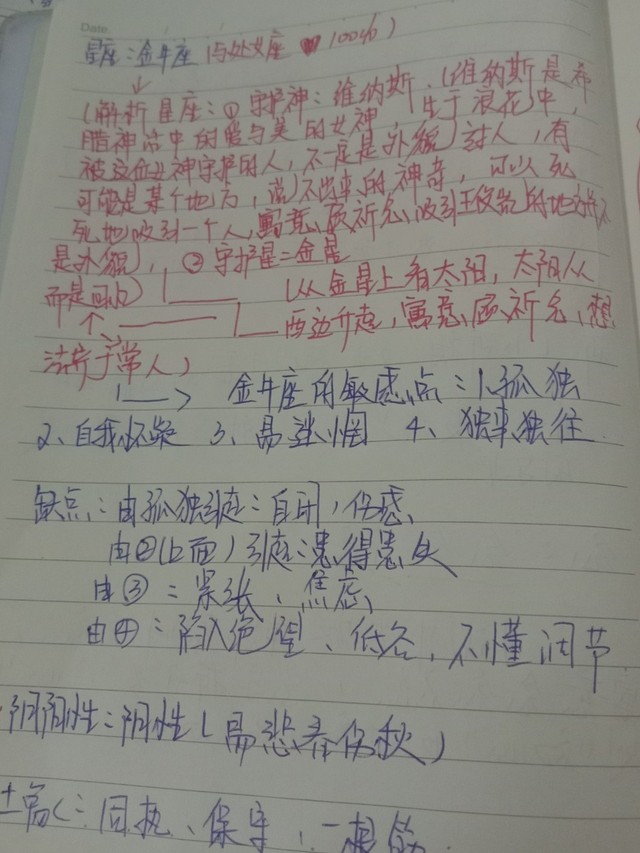 Date.
星座:金牛座 (与处女座 100%)
(解析星座:① 守护神:维纳斯,(维纳斯是希
腊神话中的爱与美的女神,生于浪花中,
被这位女神守护的人,不一定是外貌)讨人,有
可能是某个地方,说不出来的神奇,可以死
死地吸引一个人,寓意 祈 吸引 的地方不
是外貌), ② 守护星:金星
而是
(从金星上看太阳,太阳从
西边升起,寓意 祈 想
法异于常人)
金牛座的敏感点:1、孤独
2、自我怀疑 3、易迷惘 4、独来独往
缺点:由孤独引起:自闭,伤感、
由②(上面)引起:患得患失
由③:紧张、焦虑、
由④:陷入绝望、低谷,不懂调节
阴阳性:阴性(易悲春伤秋)
土象:固执、保守,一根筋.